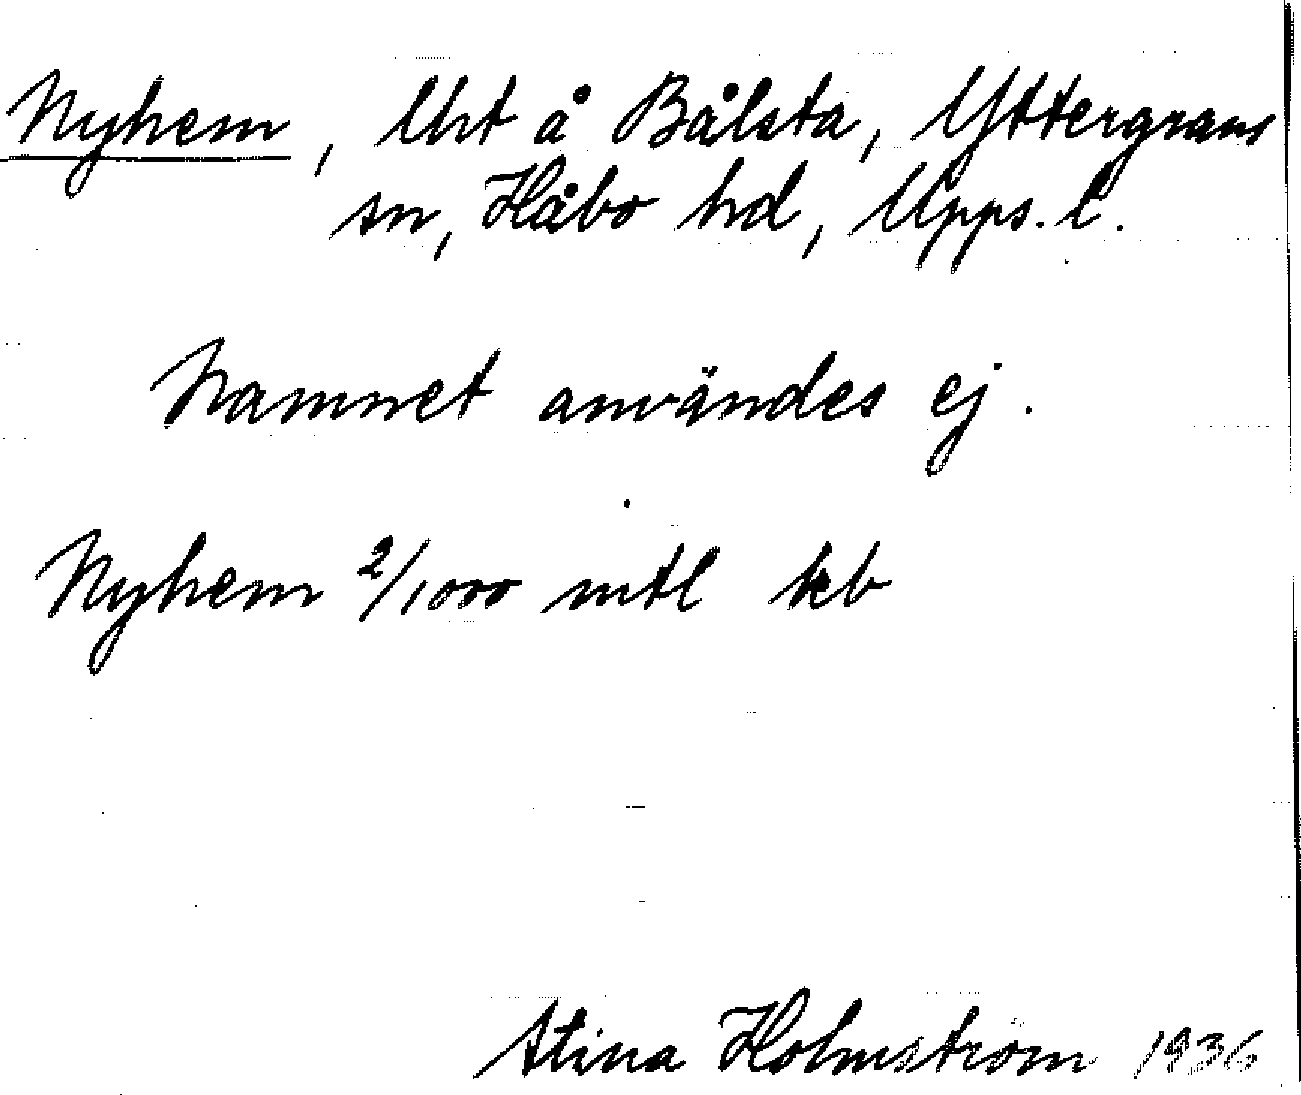 Nyhem, lht å Bålsta, Yttergrans
sn, Håbo hd, Upps. l.
Namnet användes ej.
Nyhem 2/1000 mtl kb
Stina Holmström 1936